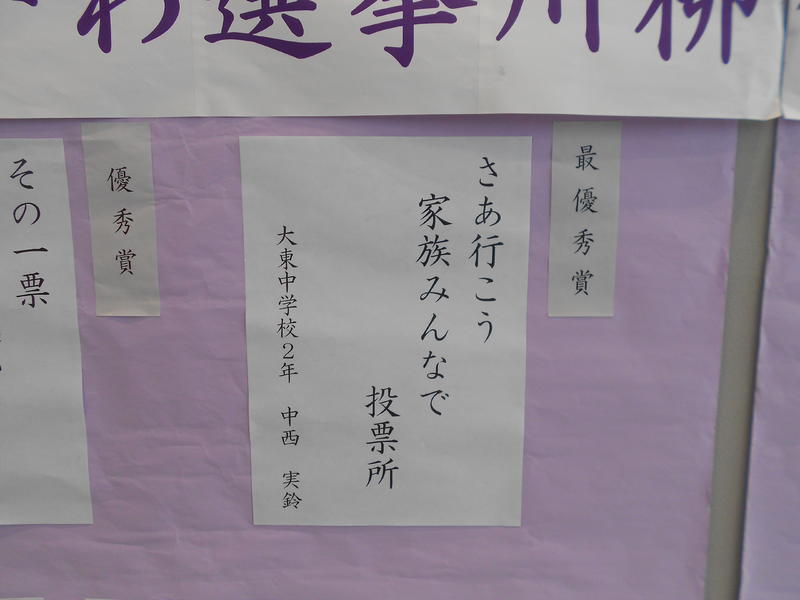 わ選挙川柳
最優秀賞
さあ行こう
家族みんなで
投票所
大東中学校2年 中西 実鈴
優秀賞
その一票